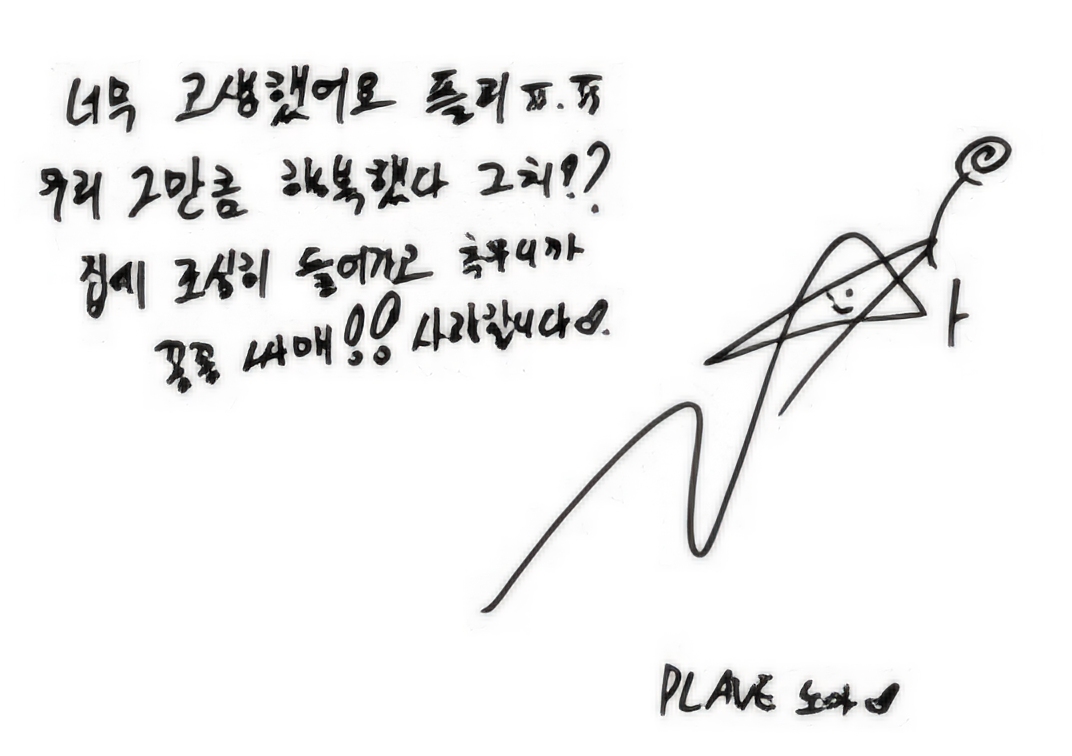 너무 고생했어요 플리 ㅠ.ㅠ
우리 그만큼 행복했다 그치!?
집에 조심히 들어가고 추우니까
꽁꽁 싸매!! 사랑합니다♡.
PLAVE 노아♡